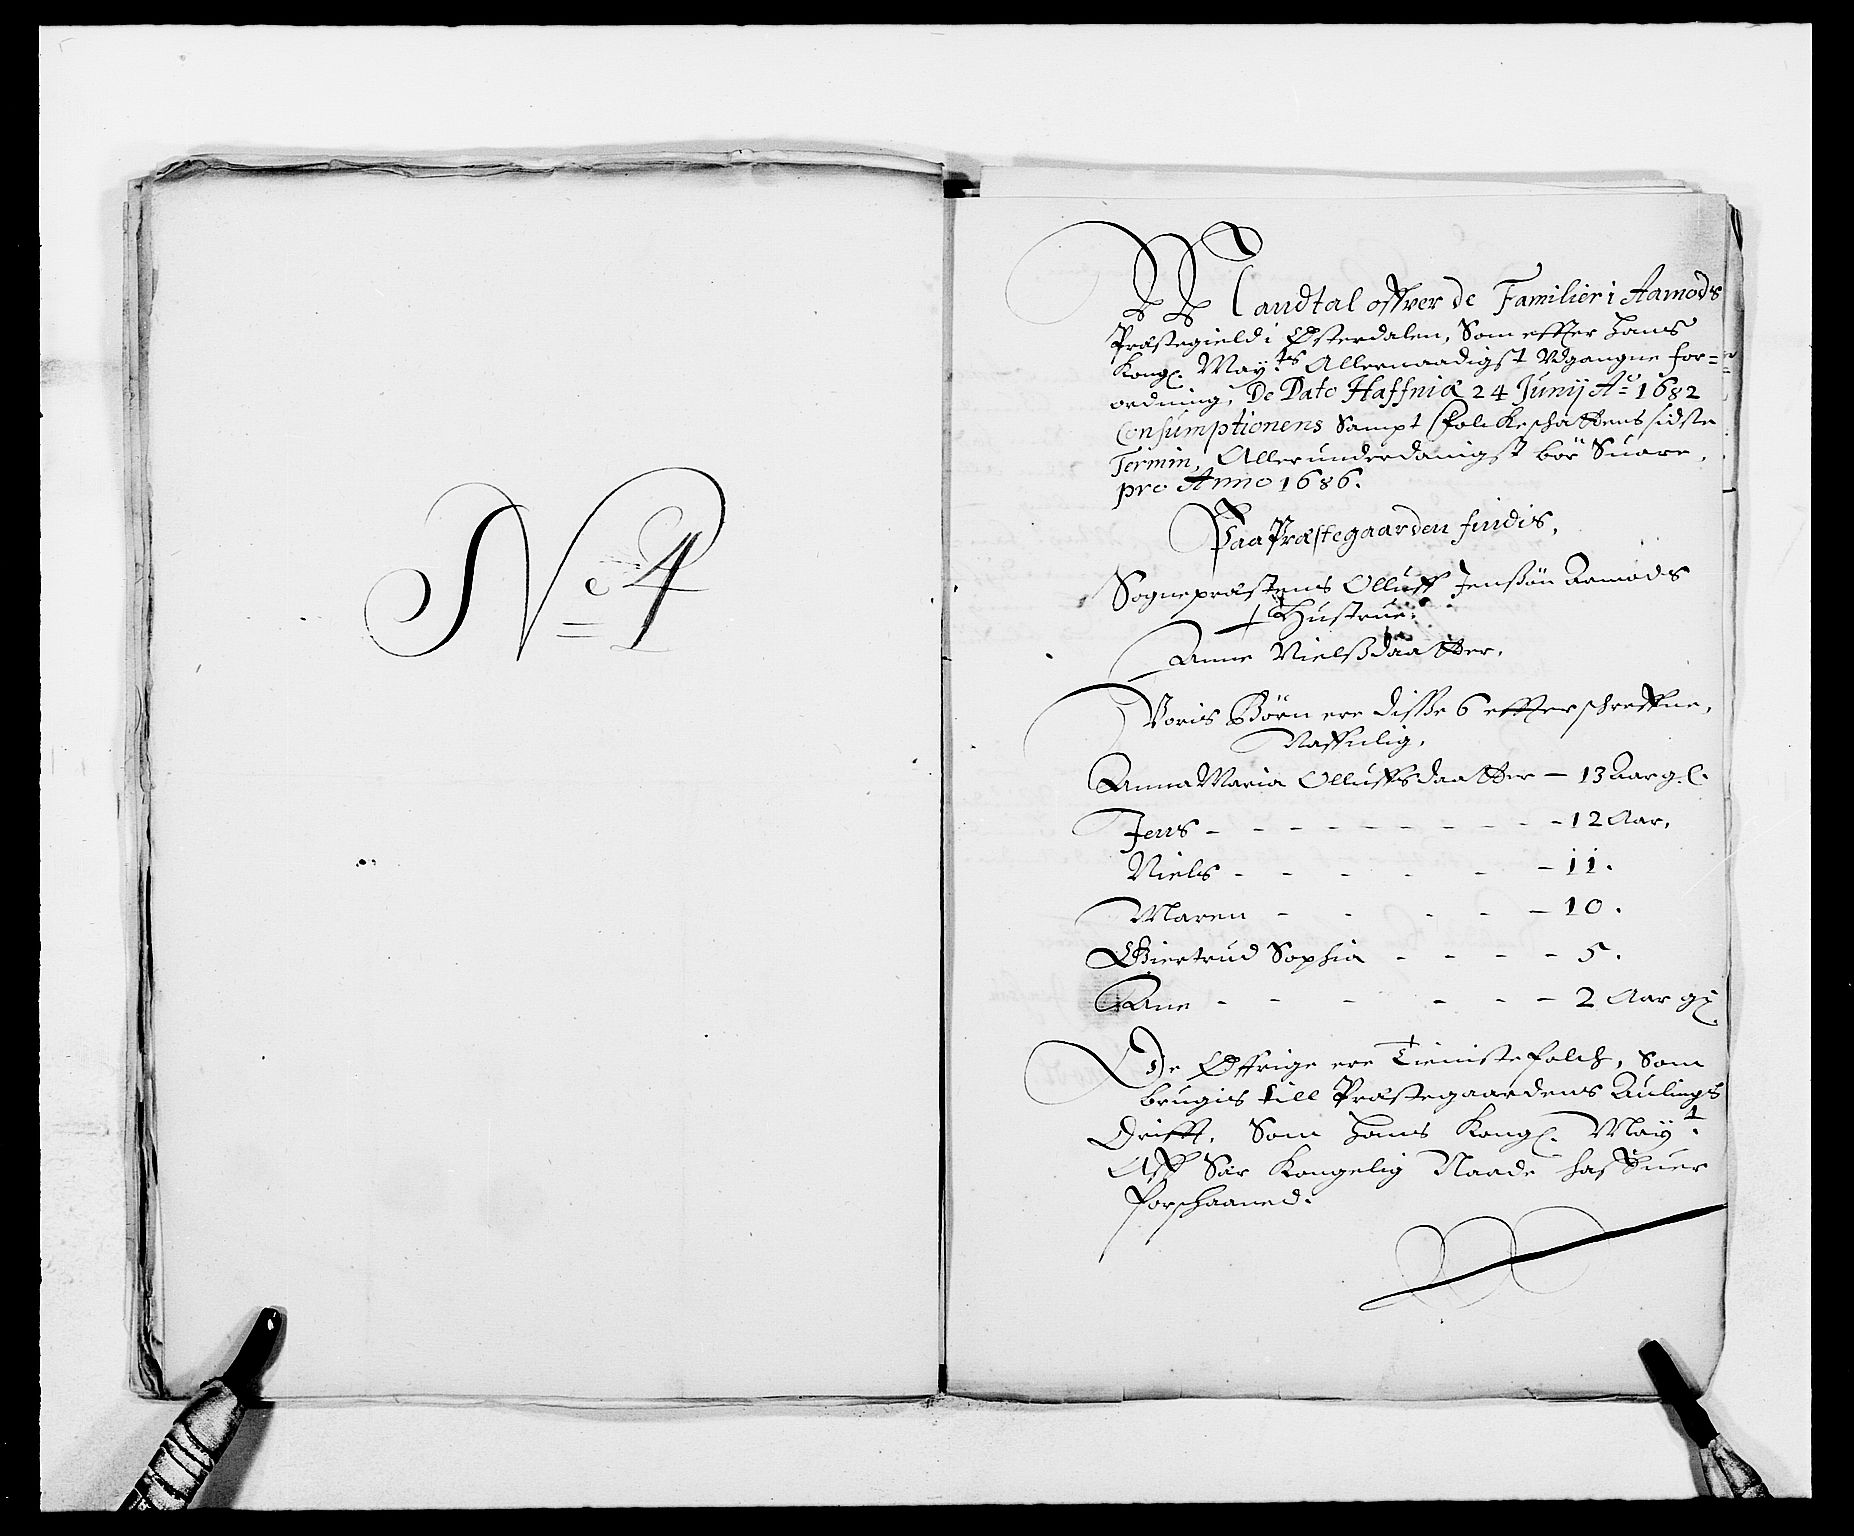 No 4
Mandtal offver de Familier i Aamods
Præstegield i Østerdalen, Som effter Hans
Kongl. May:ts Allernaadigst Vdgangne for=
ordning, De Dato Haffniæ 24 Junij Ao 1682
Consumptionens Sampt Folkeschattens sidste
Termin, Allerunderdanigst bör Suare,
pro Anno 1686.
Paa Præstegaarden findis,
Sognepræstens Olluff Jenßön Aamods
Hustrue:
Anne Nielsdaatter.
Voris Börn ere disße 6 effterschreffne,
Naffnlig,
Anna Maria Olluffsdaatter - 13 Aar gl.
Jens - - - - - - - - - - 12 Aar,
Niels - - - - - - 11.
Maren - - - - - 10.
Giertrud Sophia - - - - 5.
Ane - - - - - - 2 Aar gl.
De Øffrige ere Tienistefolch, Som
brugis till Præstegaardens Aulings
Drifft, Som Hans Kongl. May:t
Aff Sær Kongelig Naade haffuer
forschaaned.